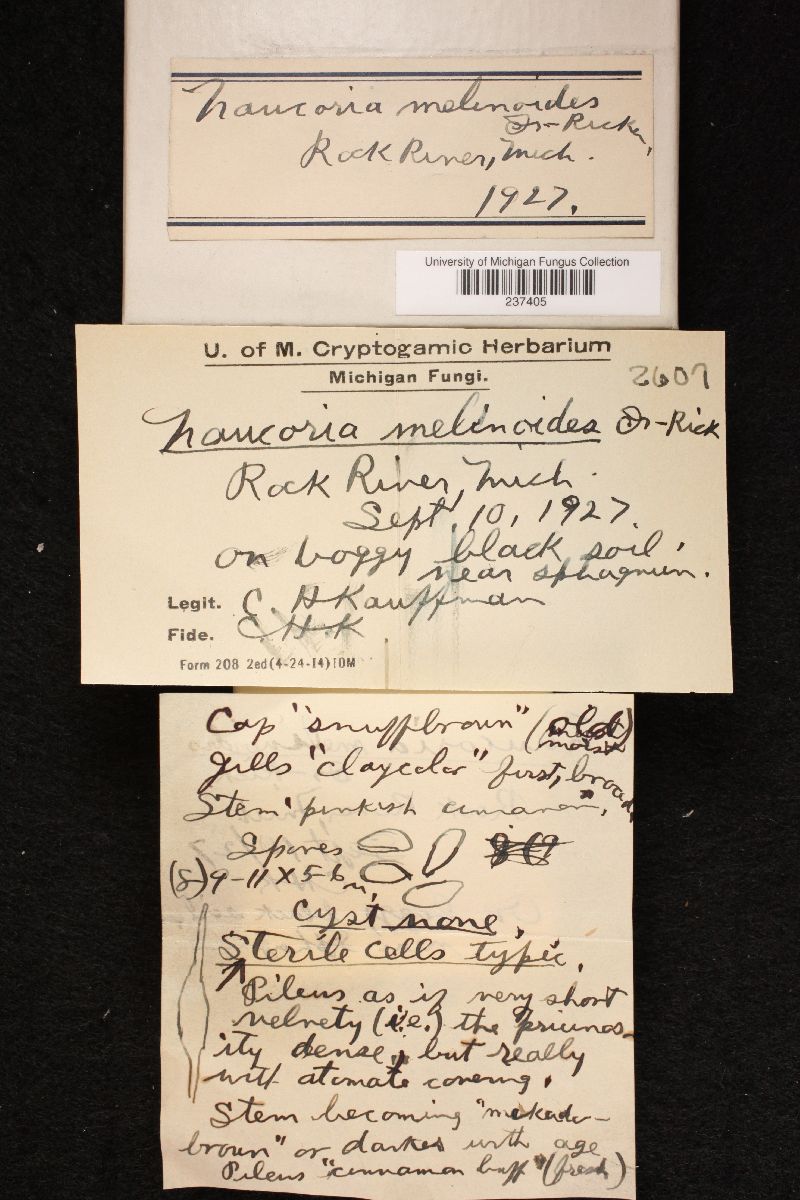 Naucoria melinoides
Fr-Ricken,
Rock River, Mich.
1927.
University of Michigan Fungus Collection
237405
U. of M. Cryptogamic Herbarium
Michigan Fungi.
2607
Naucoria melinoides Fr-Rick
Rock River, Mich.
Sept. 10, 1927.
on boggy black soil,
near sphagnum.
Legit. C. H Kauffman
Fide. C. H. K
Form 208 2ed (4-24-14) IDM
Cap "snuff brown" (old)
moist
gills "claycolor" first, broad,
Stem "pinkish cinnamon",
Spores
(8) 9-11 X 5-6 u,
Cyst none,
Sterile cells typic,
Pileus as if very short
velvety (i.e.) the pruinos-
ity dense, but really
with atomate covering,
Stem becoming "mikado-
brown" or darker with age
Pileus "cinnamon buff" (fresh)